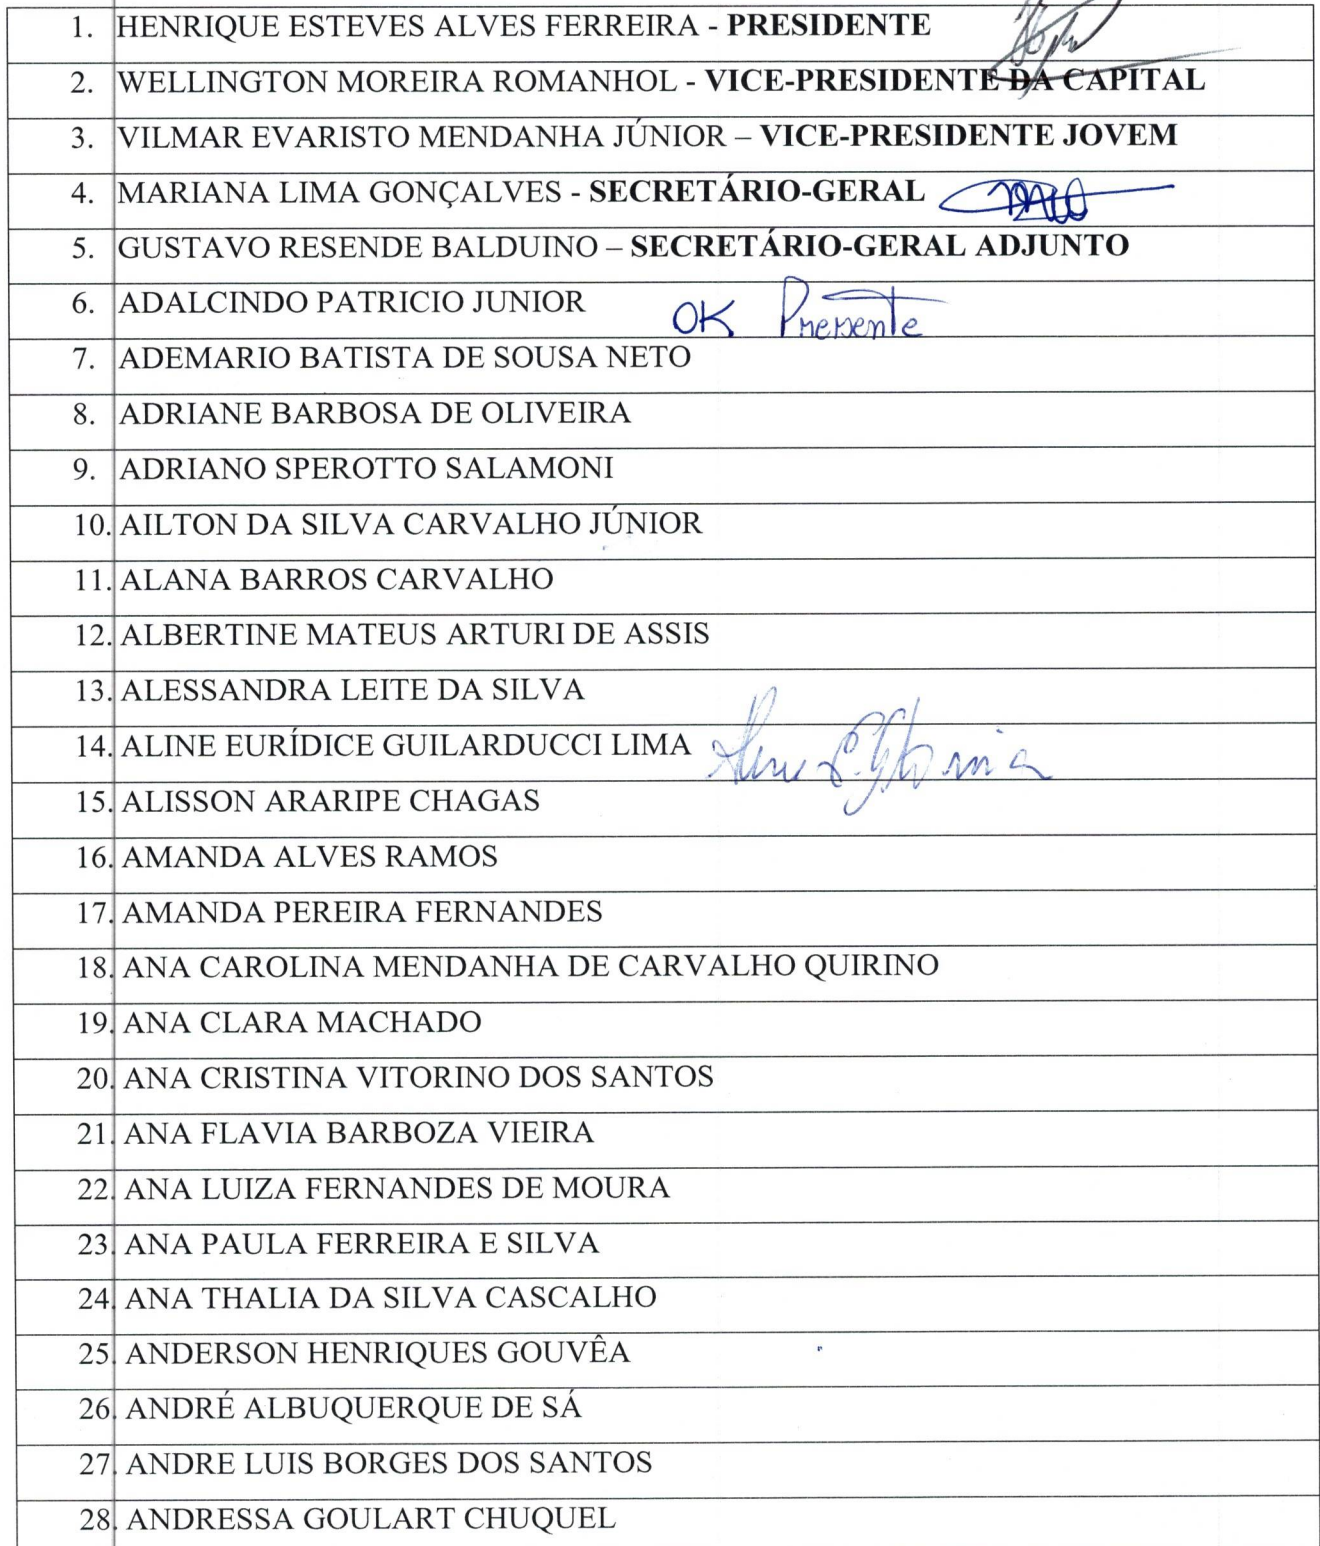 1. HENRIQUE ESTEVES ALVES FERREIRA - PRESIDENTE
2. WELLINGTON MOREIRA ROMANHOL - VICE-PRESIDENTE DA CAPITAL
3. VILMAR EVARISTO MENDANHA JÚNIOR – VICE-PRESIDENTE JOVEM
4. MARIANA LIMA GONÇALVES - SECRETÁRIO-GERAL
5. GUSTAVO RESENDE BALDUINO – SECRETÁRIO-GERAL ADJUNTO
6. ADALCINDO PATRICIO JUNIOR OK Presente
7. ADEMARIO BATISTA DE SOUSA NETO
8. ADRIANE BARBOSA DE OLIVEIRA
9. ADRIANO SPEROTTO SALAMONI
10. AILTON DA SILVA CARVALHO JÚNIOR
11. ALANA BARROS CARVALHO
12. ALBERTINE MATEUS ARTURI DE ASSIS
13. ALESSANDRA LEITE DA SILVA
14. ALINE EURÍDICE GUILARDUCCI LIMA
15. ALISSON ARARIPE CHAGAS
16. AMANDA ALVES RAMOS
17. AMANDA PEREIRA FERNANDES
18. ANA CAROLINA MENDANHA DE CARVALHO QUIRINO
19. ANA CLARA MACHADO
20. ANA CRISTINA VITORINO DOS SANTOS
21. ANA FLAVIA BARBOZA VIEIRA
22. ANA LUIZA FERNANDES DE MOURA
23. ANA PAULA FERREIRA E SILVA
24. ANA THALIA DA SILVA CASCALHO
25. ANDERSON HENRIQUES GOUVÊA
26. ANDRÉ ALBUQUERQUE DE SÁ
27. ANDRE LUIS BORGES DOS SANTOS
28. ANDRESSA GOULART CHUQUEL